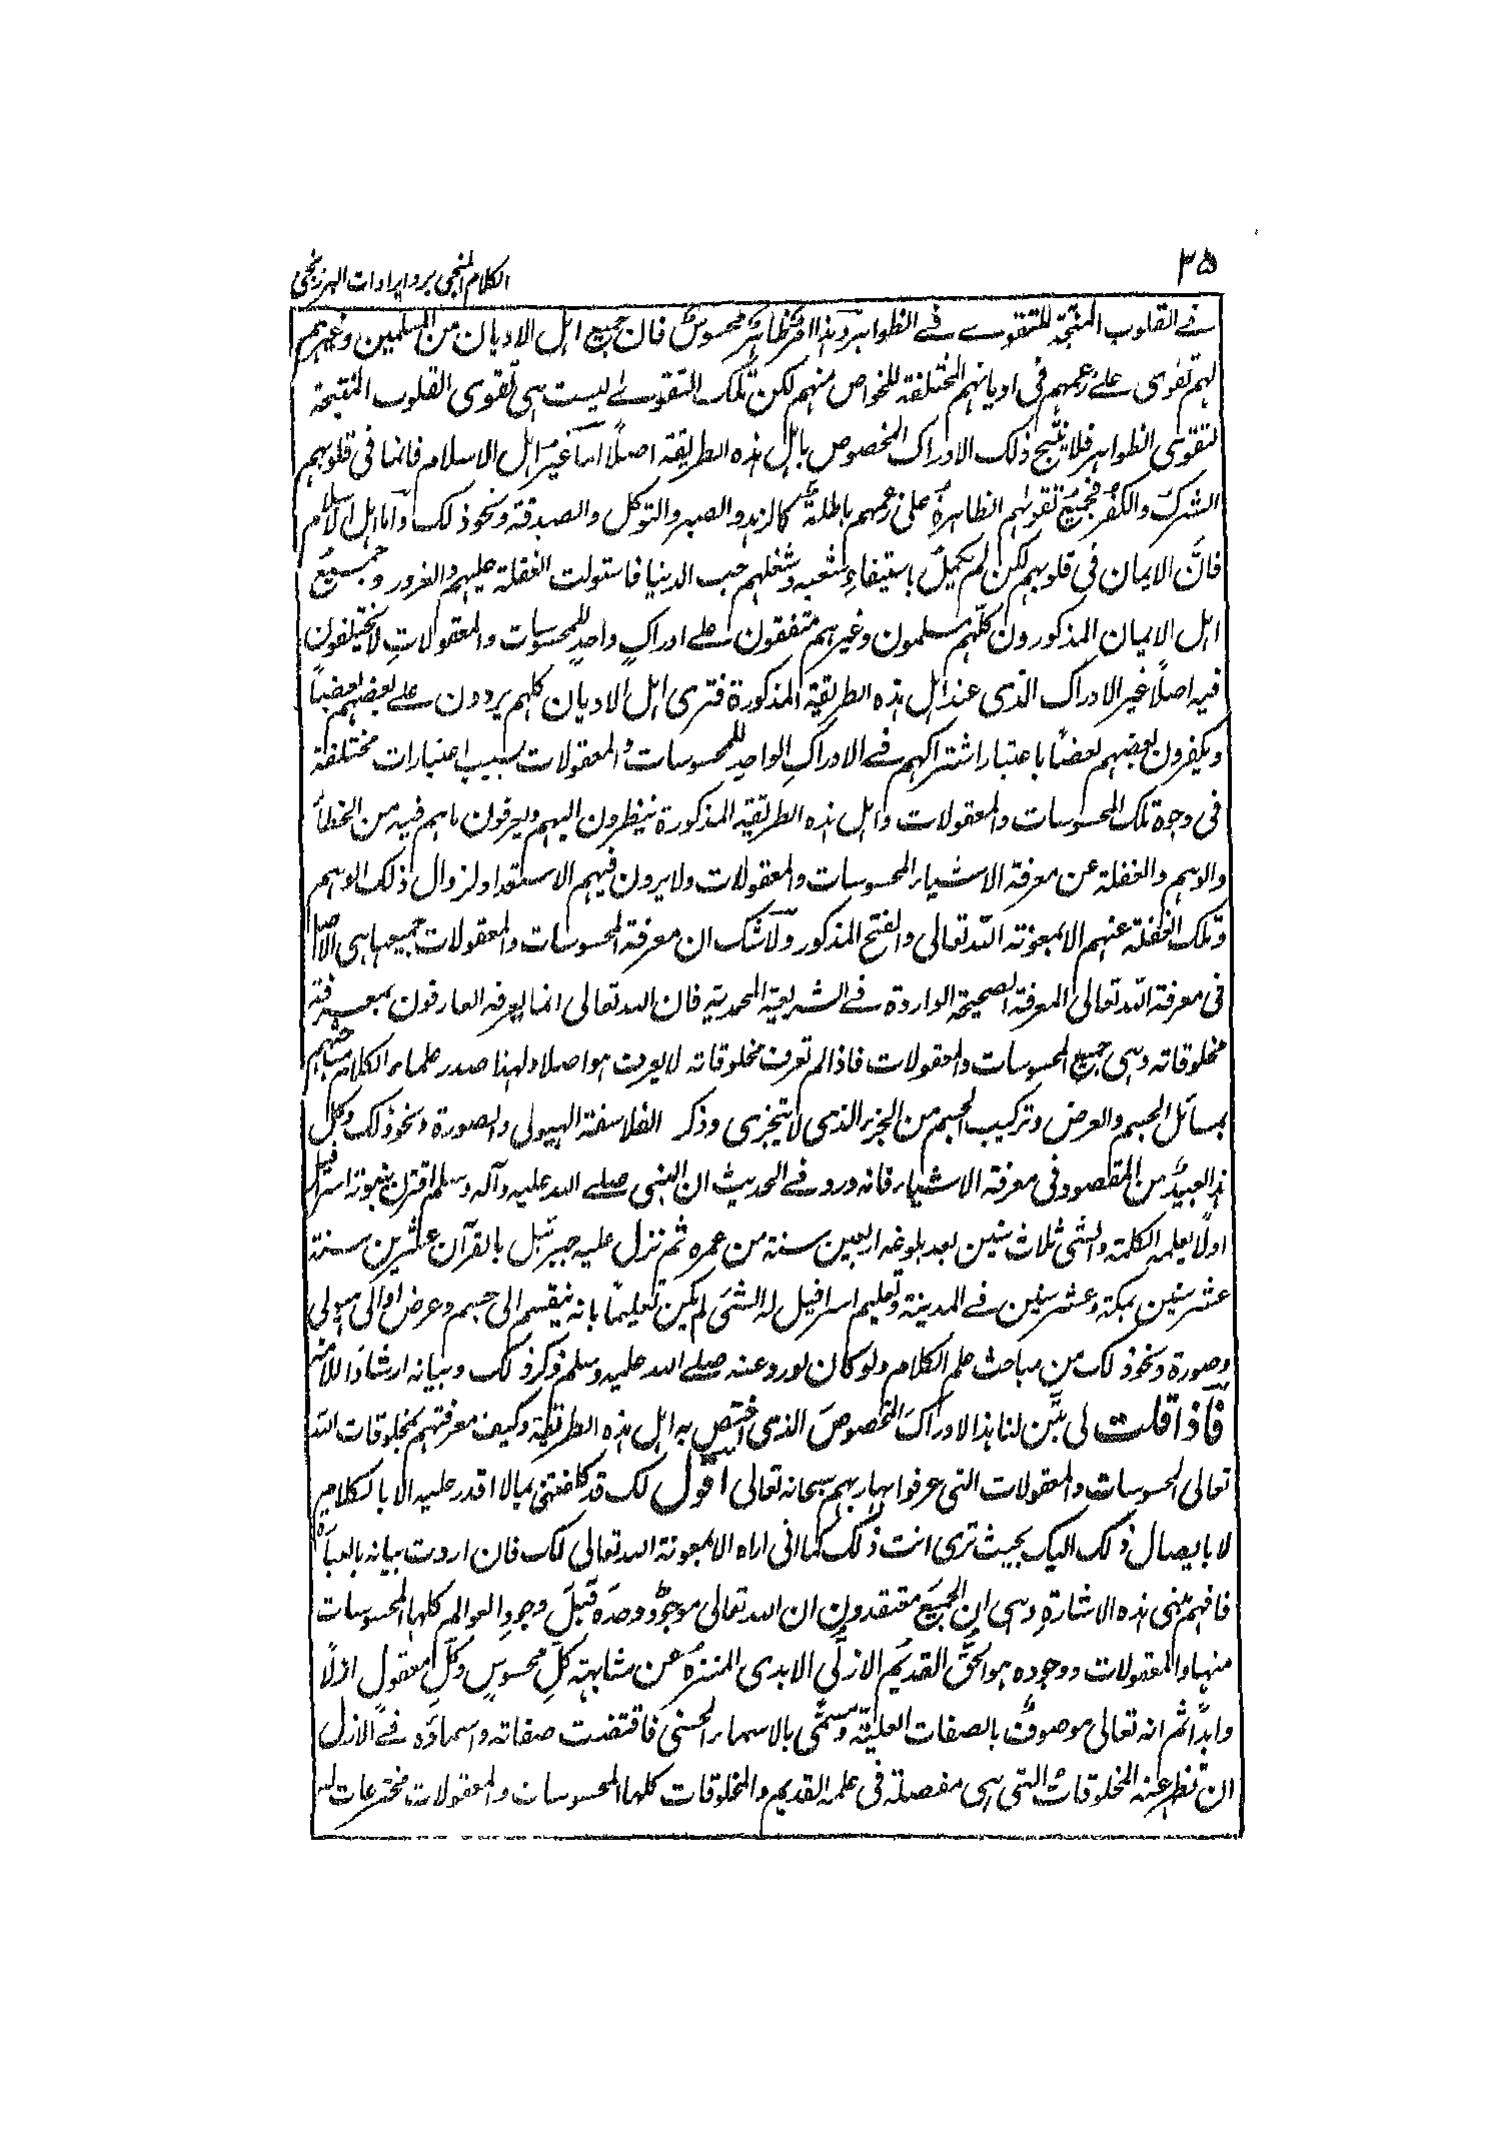 ٣٥
الكلام المنجى برد ايرادات البرزنجى
فى القلوب المنتجة للتقوى فى الظواهر وهذا امرٌ ظاهرٌ محسوسٌ فان جميع اهل الاديان من المسلمين وغيرهم
لهم تقوى على زعمهم فى اديانهم المختلفة للخواص منهم لكن تلك التقوى ليست هى تقوى القلوب المنتجة
لتقوى الظواهر فلا تنتج ذلك الادراك المخصوص باهل هذه الطريقة اصلًا اما غير اهل الاسلام فانما فى قلوبهم
الشرك والكفر فجميع تقواهم الظاهرة على زعمهم باطلة كالزهد والصبر والتوكل والصدقة ونحو ذلك واما اهل الاسلام
فانّ الايمان فى قلوبهم لكن لم يكمل باستيفاء شعبه وشغلهم حب الدنيا فاستولت الغفلة عليهم والغرور وجميع
اهل الايمان المذكورون كلهم مسلمون وغيرهم متفقون على ادراكٍ واحدٍ للمحسوسات والمعقولاتِ لا يختلفون
فيه اصلًا غير الادراك الذى عند اهل هذه الطريقة المذكورة فترى اهل الاديان كلهم يردون على بعضهم بعضًا
ويكفرون بعضهم بعضًا باعتبار اشتراكهم فى الادراكِ الواحدِ للمحسوسات والمعقولات بسبب اعتبارات مختلفة
فى وجوه تلك المحسوسات والمعقولات واهل هذه الطريقة المذكورة ينظرون اليهم ويعرفون ما هم فيه من الخطأ
والوهم والغفلة عن معرفة الاشياء المحسوسات والمعقولات ولا يرون فيهم الاستعداد لزوال ذلك الوهم
وتلك الغفلة عنهم الا بمعونة الله تعالى والفتح المذكور ولا شك ان معرفة المحسوسات والمعقولات جميعها هى الاصل
فى معرفة الله تعالى المعرفة الصحيحة الواردة فى الشريعة المحمدية فان الله تعالى انما يعرفه العارفون بمعرفة
مخلوقاته وهى جميع المحسوسات والمعقولات فاذا لم تعرف مخلوقاته لا يعرف هو اصلا ولهذا صدر علماء الكلام مباحثهم
بمسائل الجسم والعرض وتركيب الجسم من الجزء الذى لا يتجزى وذكر الفلاسفة الهيولى والصورة ونحو ذلك وكل
هذا بعيدٌ من المقصود فى معرفة الاشياء فانه ورد فى الحديث ان النبى صلى الله عليه وآله وسلم اقترن بنبوته اسرافيل
اولًا يعلمه الكلمة والشئ ثلاث سنين بعد بلوغه اربعين سنة من عمره ثم نزل عليه جبرئيل بالقرآن عشرين سنة
عشر سنين بمكة وعشر سنين فى المدينة وتعليم اسرافيل له الشئ لم يكن تعليمًا بانه ينقسم الى جسم وعرض او الى هيولى
وصورة ونحو ذلك من مباحث علم الكلام ولو كان لورد عنه صلى الله عليه وسلم ذكر ذلك وبيانه ارشادا للامة
فاذا قلت لى بيّن لنا هذا الادراكَ المخصوصَ الذى اختص به اهل هذه الطريقة وكيف معرفتهم بمخلوقات الله
تعالى المحسوسات والمعقولات التى عرفوا بها ربهم سبحانه تعالى اقول لك قد كلفتنى بما لا اقدر عليه الا بالكلام
لا بايصال ذلك اليك بحيث ترى انت ذلك كما انى اراه الا بمعونة الله تعالى لك فان اردت بيانه بالعبارة
فافهم منى هذه الاشارة وهى ان الجميع معتقدون ان الله تعالى موجودٌ وحدَه قبلَ وجودِ العوالم كلها المحسوسات
منها والمعقولات ووجوده هو الحقُّ القديمُ الازلى الابدى المنزه عن مشابهة كلِّ محسوسٍ وكلِّ معقولٍ ازلًا
وابدًا ثم انه تعالى موصوفٌ بالصفات العليّة ومسمًّى بالاسماء الحسنى فاقتضت صفاته واسماؤه فى الازل
ان تظهر عنه المخلوقات التى هى مفصلة فى علمه القديم والمخلوقات كلها المحسوسات والمعقولات مخترعات له